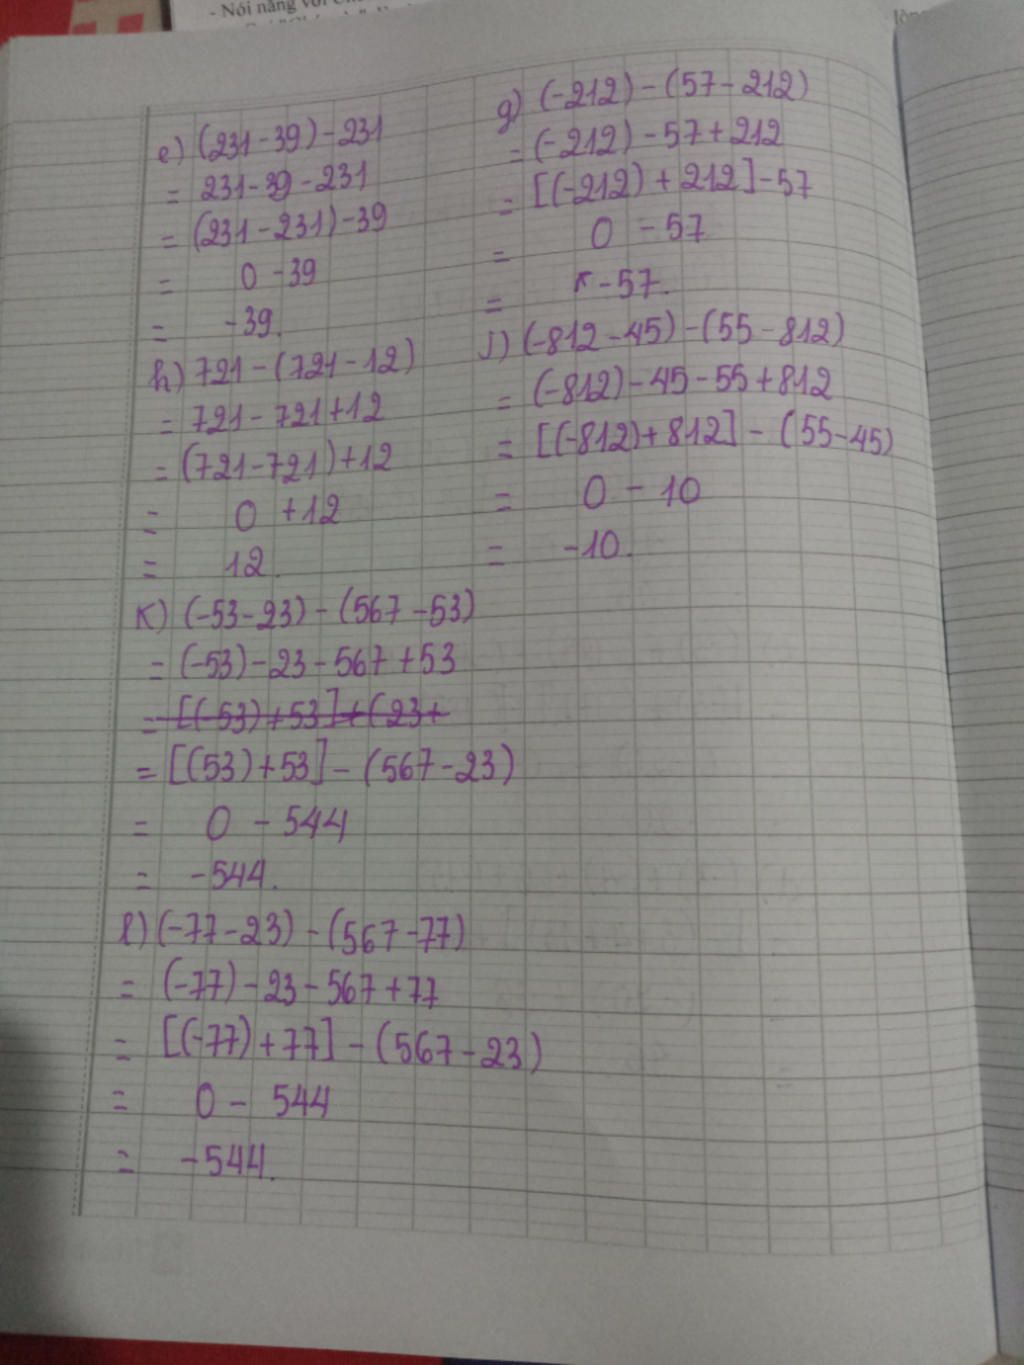 - Nói năng với
e) (231-39)-231
= 231-39-231
= (231-231)-39
= 0-39
= -39.
g) (-212)-(57-212)
= (-212)-57+212
= [(-212)+212]-57
= 0-57
= -57.
h) 721-(721-12)
= 721-721+12
= (721-721)+12
= 0+12
= 12.
j) (-812-45)-(55-812)
= (-812)-45-55+812
= [(-812)+812]-(55-45)
= 0-10
= -10.
k) (-53-23)-(567-53)
= (-53)-23-567+53
= [(-53)+53]+(23+
= [(53)+53]-(567-23)
= 0-544
= -544.
l) (-77-23)-(567-77)
= (-77)-23-567+77
= [(-77)+77]-(567-23)
= 0-544
= -544.